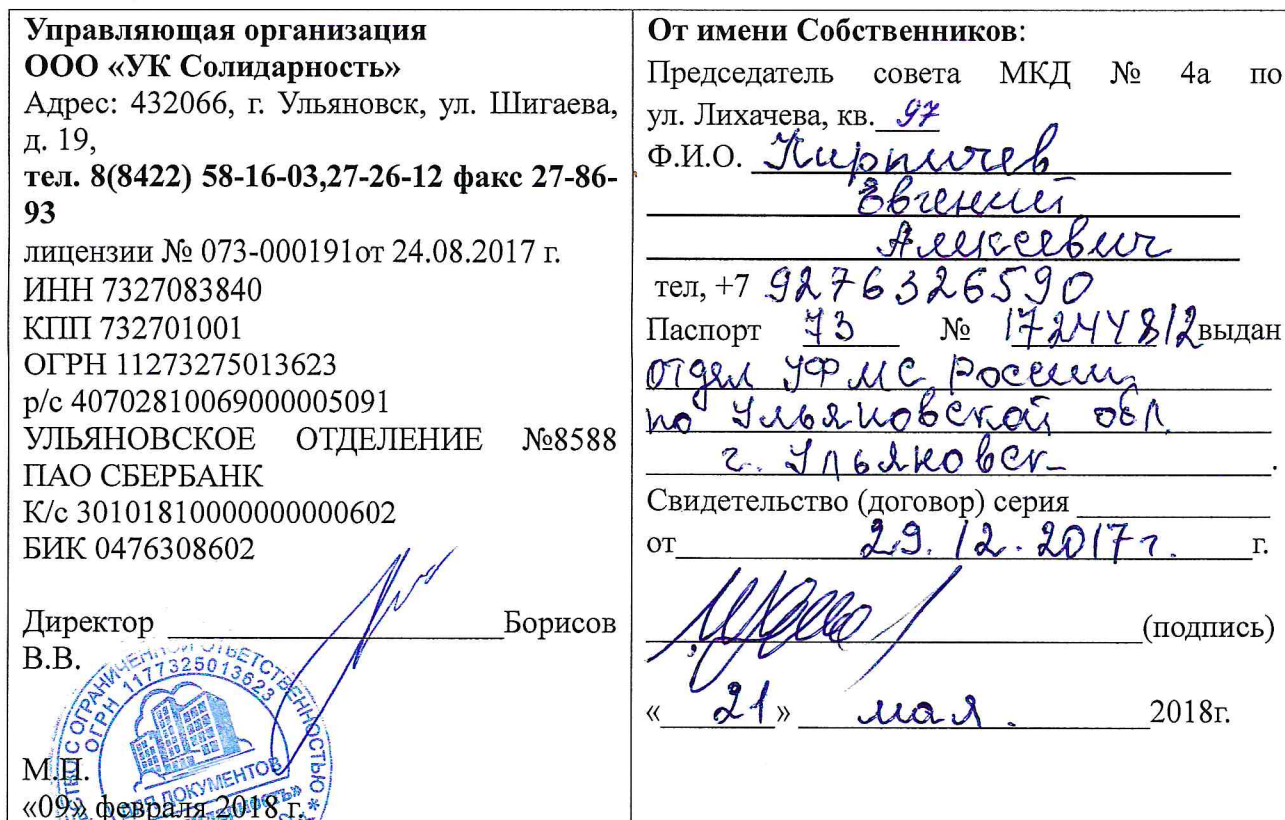 Управляющая организация
ООО «УК Солидарность»
Адрес: 432066, г. Ульяновск, ул. Шигаева,
д. 19,
тел. 8(8422) 58-16-03,27-26-12 факс 27-86-
93
лицензии № 073-000191от 24.08.2017 г.
ИНН 7327083840
КПП 732701001
ОГРН 11273275013623
р/с 40702810069000005091
УЛЬЯНОВСКОЕ ОТДЕЛЕНИЕ №8588
ПАО СБЕРБАНК
К/с 30101810000000000602
БИК 0476308602
Директор Борисов
В.В.
ОГРАНИЧЕННОЙ ОТВЕТСТВЕННОСТЬЮ *
ОГРН 1177325013623
ДОКУМЕНТОВ
М.П.
«09» февраля 2018 г.
От имени Собственников:
Председатель совета МКД № 4а по
ул. Лихачева, кв. 97
Ф.И.О. Кирпичев
Евгений
Алексеевич
тел, +7 9276326590
Паспорт 73 № 17244812 выдан
отдел УФМС России
по Ульяновской обл.
г. Ульяновск
Свидетельство (договор) серия
от 29.12.2017г. г.
(подпись)
«21» мая. 2018г.